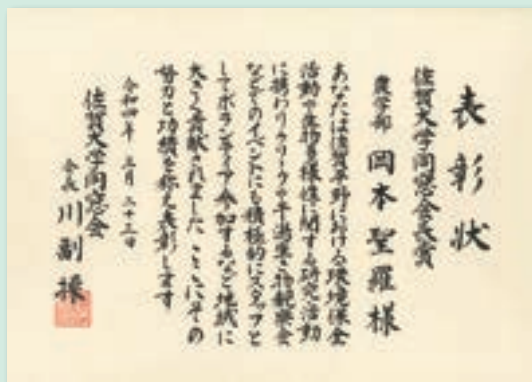 表彰状
佐賀大学同窓会長賞
農学部 岡本聖羅様
あなたは佐賀平野における環境保全
活動や生物多様性に関する研究活動
に携わりクリークや干潟まつり物観察会
などのイベントにも積極的にスタッフと
してボランティア参加するなど地域に
大きく貢献されました ここにその
努力と功績を称え表彰します
令和四年 三月 二十三日
佐賀大学同窓会
会長 川副操